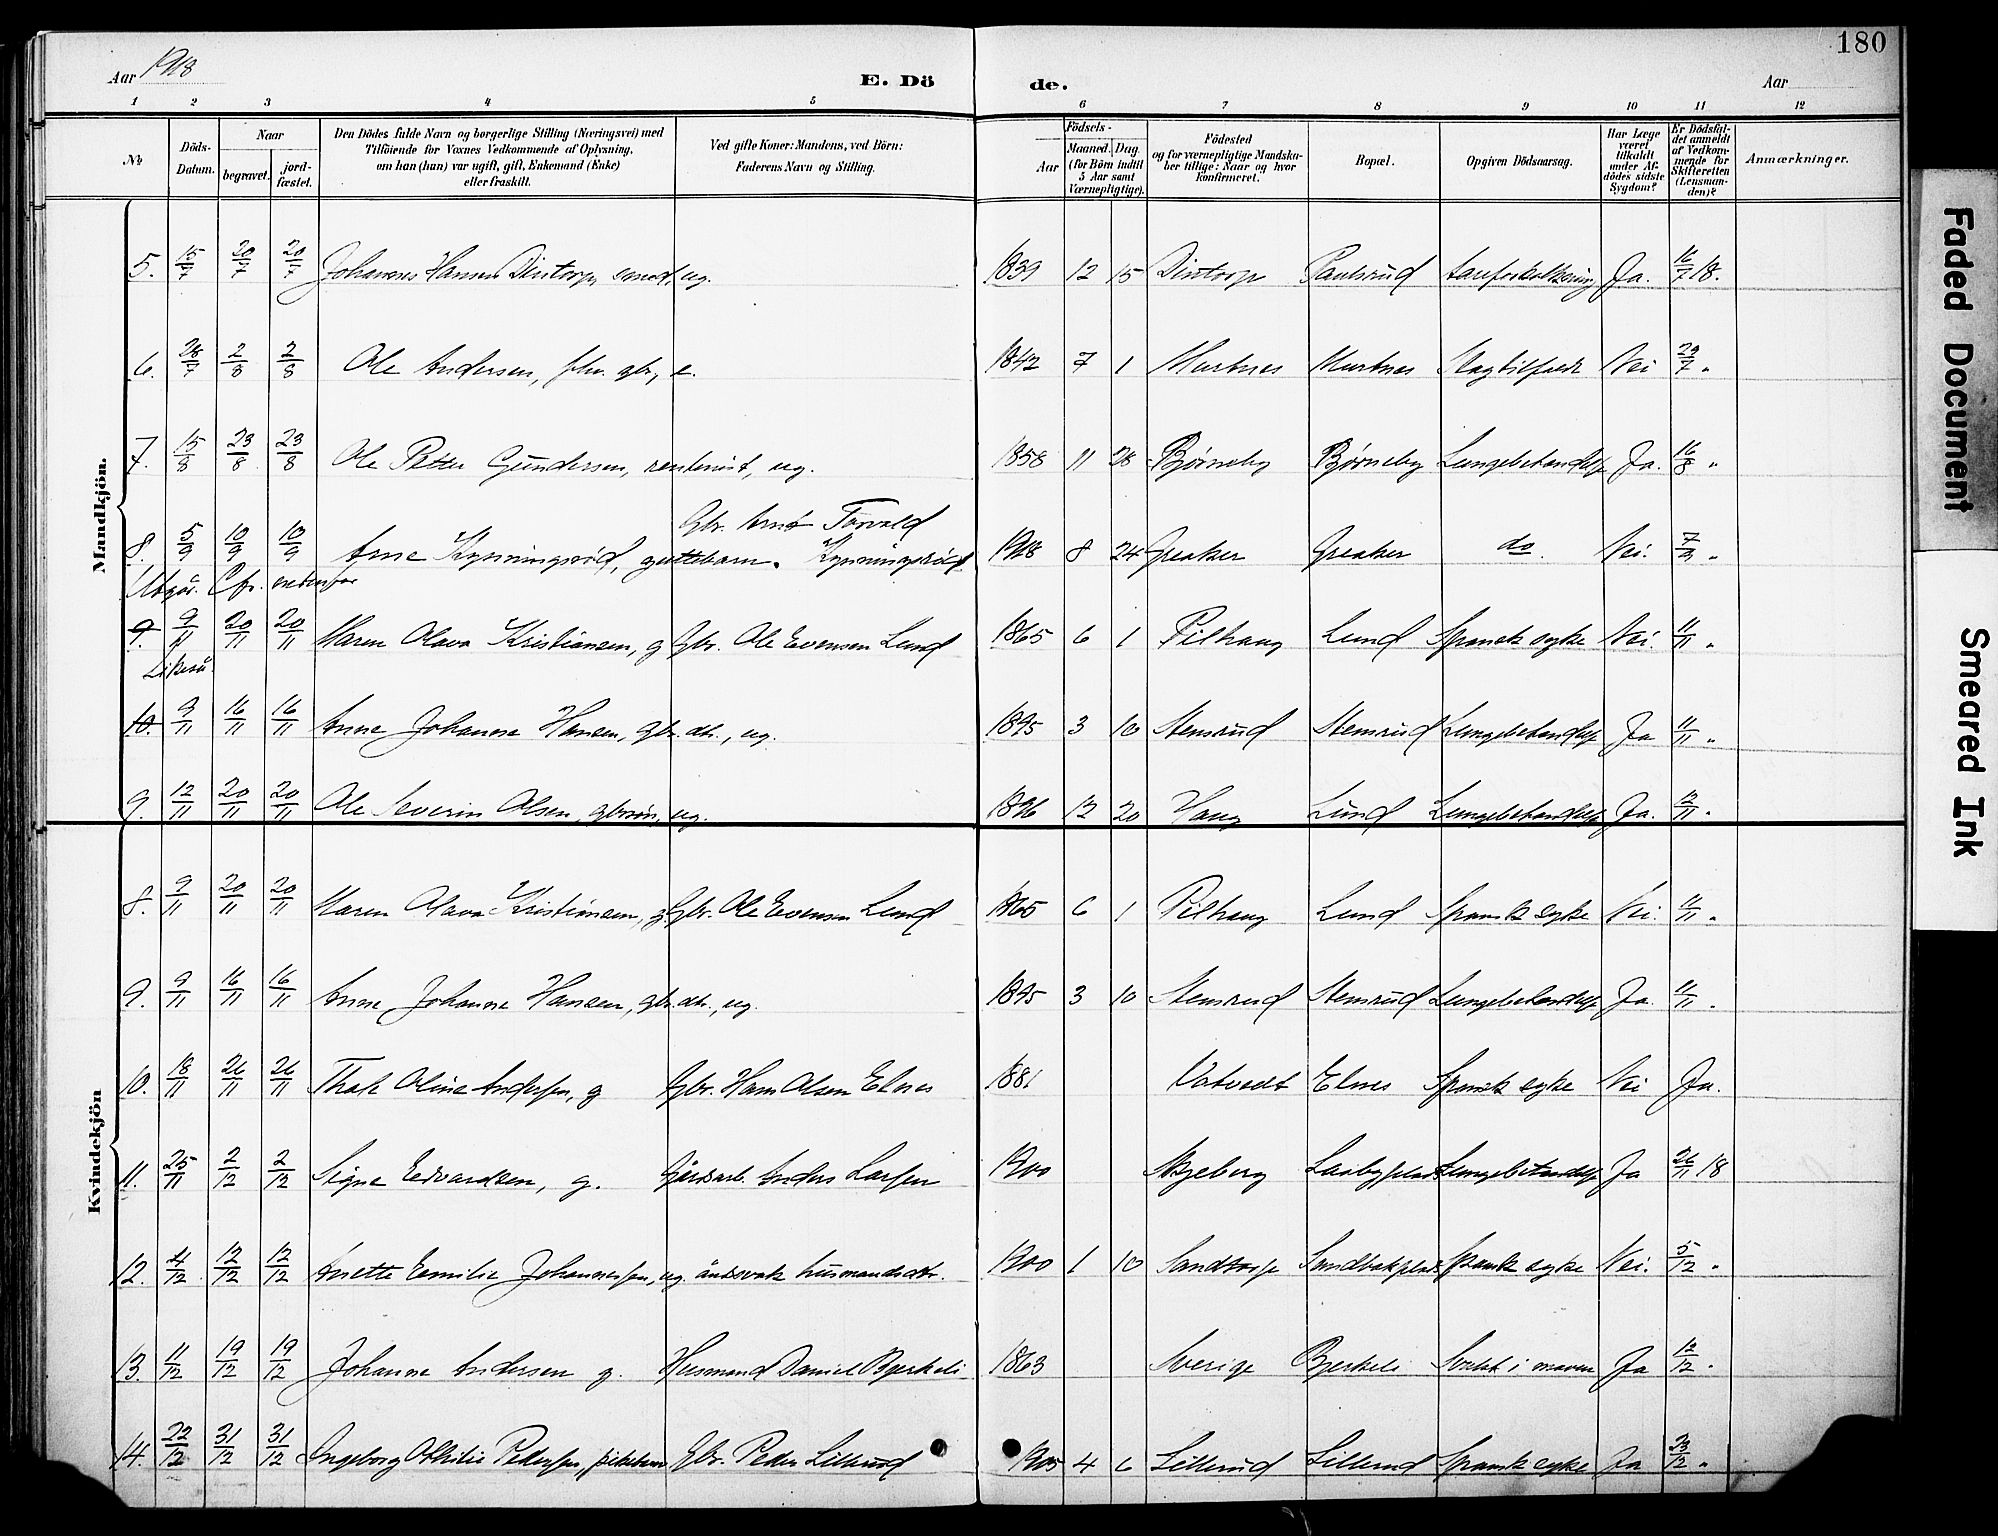 180
Aar 1918
E. Dö
de.
Aar
1 2 3 4 5 6 7 8 9 10 11 12
№
Döds-Datum.
Naar
begravet. jord-fæstet.
Den Dödes fulde Navn og borgerlige Stilling (Næringsvei) med
Tilföiende for Voxnes Vedkommende af Oplysning,
om han (hun) var ugift, gift, Enkemand (Enke)
eller fraskilt.
Ved gifte Koner: Mandens, ved Börn:
Faderens Navn og Stilling.
Födsels-
Aar Maaned. Dag.
(for Börn indtil
5 Aar samt
Værnepligtige).
Födested
og for værnepligtige Mandska-
ber tillige: Naar og hvor
konfirmeret.
Bopæl.
Opgiven Dödsaarsag.
Har Læge
været
tilkaldt
under Af-
dödes sidste
Sygdom?
Er Dödsfal-
det anmeldt
af Vedkom-
mende for
Skifteretten
(Lensman-
den)?
Anmærkninger.
Mandkjön.
5. 15/7 20/7 20/7 Johannes Hansen Dintorp, ug. 1839 12 15 Dintorp Paulsrud Ja. 16/7 18.
6. 28/7 2/8 2/8 Ole Andersen, fhv. gbr, e. 1842 7 1 Murtnes Murtnes Slagtilfælde Nei 29/7 "
7. 15/8 23/8 23/8 Ole Petter Gundersen, rentenist, ug. 1858 11 28 Bjørneby Bjørneby Lungebetændelse Ja. 16/8 "
Gbr. Arnt Torvald
8. 5/9 10/9 10/9 Arne Kynningsrød, guttebarn. Kynningsrød 1918 8 24 Greaker Greaker do. Nei. 7/9 "
Utgår. Cfr. nedenfor
9. 9/11 20/11 20/11 Maren Olava Kristiansen, g Gbr. Ole Evensen Lund 1865 6 1 Pilhaug Lund Spansk syke Nei. 11/11 "
Likeså.
10. 9/11 16/11 16/11 Anne Johanne Hansen, gbr. dtr., ug. 1895 3 10 Stensrud Stensrud Lungebetændelse Ja 11/11 "
9. 12/11 20/11 20/11 Ole Severin Olsen, gbrsøn, ug. 1896 12 20 Haug Lund Lungebetændelse Ja. 12/11 "
Kvindekjön
8. 9/11 20/11 20/11 Maren Olava Kristiansen, g. Gbr. Ole Evensen Lund 1865 6 1 Pilhaug Lund Spansk syke Nei. 11/11 "
9. 9/11 16/11 16/11 Anne Johanne Hansen, gbr. dtr., ug. 1895 3 10 Stensrud Stensrud Lungebetændelse Ja. 11/11 "
10. 18/11 26/11 26/11 Thea Oline Andersen, g Gbr. Hans Olsen Elnes 1881 Vatvedt Elnes Spansk syke Nei Ja.
11. 25/11 2/12 2/12 Signe Edvardsen, g. Gårdsarb. Anders Larsen 1900 Skjeberg Lungebetændelse Ja 26/11 18
12. 4/12 12/12 12/12 Anette Emilie Johannesen, ug. åndssvak husmandsdtr. 1900 1 10 Sandtorp Sandbakplads Spansk syke Nei. 5/12 "
13. 11/12 19/12 19/12 Johanne Andersen g. Husmand Daniel Bjerkeli 1863 Sverige Bjerkeli Svulst i maven Ja 12/12 "
14. 22/12 31/12 31/12 Ingeborg Othilie Pedersen, pikebarn Gbr. Peder Lillerud 1905 4 6 Lillerud Lillerud Spansk syke Ja 23/12 "
Faded Document
Smeared Ink